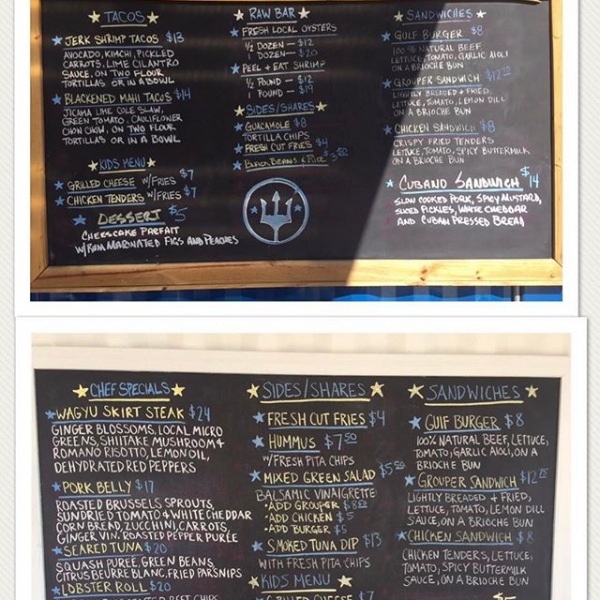 TACOS
JERK SHRIMP TACOS $13
AVOCADO, KIMCHI, PICKLED
CARROTS, LIME CILANTRO
SAUCE, ON TWO FLOUR
TORTILLAS OR IN A BOWL
BLACKENED MAHI TACOS $14
JICAMA LIME COLE SLAW,
GREEN TOMATO, CAULIFLOWER
CHOW CHOW, ON TWO FLOUR
TORTILLAS OR IN A BOWL
KIDS MENU
GRILLED CHEESE W/FRIES $7
CHICKEN TENDERS W/FRIES $7
DESSERT $5
CHEESCAKE PARFAIT
W/RUM MARINATED FIGS AND PEACHES
RAW BAR
FRESH LOCAL OYSTERS
1/2 DOZEN — $12
1 DOZEN — $20
PEEL + EAT SHRIMP
1/2 POUND — $12
1 POUND — $19
SIDES/SHARES
GUACAMOLE $8
TORTILLA CHIPS
FRESH CUT FRIES $4
BLACK BEANS & RICE
SANDWICHES
GULF BURGER $8
100% NATURAL BEEF
LETTUCE, TOMATO, GARLIC AIOLI
ON A BRIOCHE BUN
GROUPER SANDWICH
LIGHTLY BREADED + FRIED,
LETTUCE, TOMATO, LEMON DILL
ON A BRIOCHE BUN
CHICKEN SANDWICH $8
CRISPY FRIED TENDERS
LETTUCE, TOMATO, SPICY BUTTERMILK
ON A BRIOCHE BUN
CUBANO SANDWICH $14
SLOW COOKED PORK, SPICY MUSTARD,
SLICED PICKLES, WHITE CHEDDAR
AND CUBAN PRESSED BREAD
CHEF SPECIALS
WAGYU SKIRT STEAK $24
GINGER BLOSSOMS, LOCAL MICRO
GREENS, SHIITAKE MUSHROOM +
ROMANO RISOTTO, LEMON OIL,
DEHYDRATED RED PEPPERS
PORK BELLY $17
ROASTED BRUSSELS SPROUTS,
SUNDRIED TOMATO + WHITE CHEDDAR
CORN BREAD, ZUCCHINI, CARROTS,
GINGER VIN. ROASTED PEPPER PURÉE
SEARED TUNA $20
SQUASH PUREE, GREEN BEANS,
CITRUS BEURRE BLANC, FRIED PARSNIPS
LOBSTER ROLL $20
SIDES/SHARES
FRESH CUT FRIES $4
HUMMUS $7.50
W/FRESH PITA CHIPS
MIXED GREEN SALAD $5.50
BALSAMIC VINAIGRETTE
• ADD GROUPER
• ADD CHICKEN $5
• ADD BURGER $5
SMOKED TUNA DIP $13
WITH FRESH PITA CHIPS
KIDS MENU
GRILLED CHEESE $7
SANDWICHES
GULF BURGER $8
100% NATURAL BEEF, LETTUCE,
TOMATO, GARLIC AIOLI, ON A
BRIOCHE BUN
GROUPER SANDWICH
LIGHTLY BREADED + FRIED,
LETTUCE, TOMATO, LEMON DILL
SAUCE, ON A BRIOCHE BUN
CHICKEN SANDWICH $8
CHICKEN TENDERS, LETTUCE,
TOMATO, SPICY BUTTERMILK
SAUCE, ON A BRIOCHE BUN